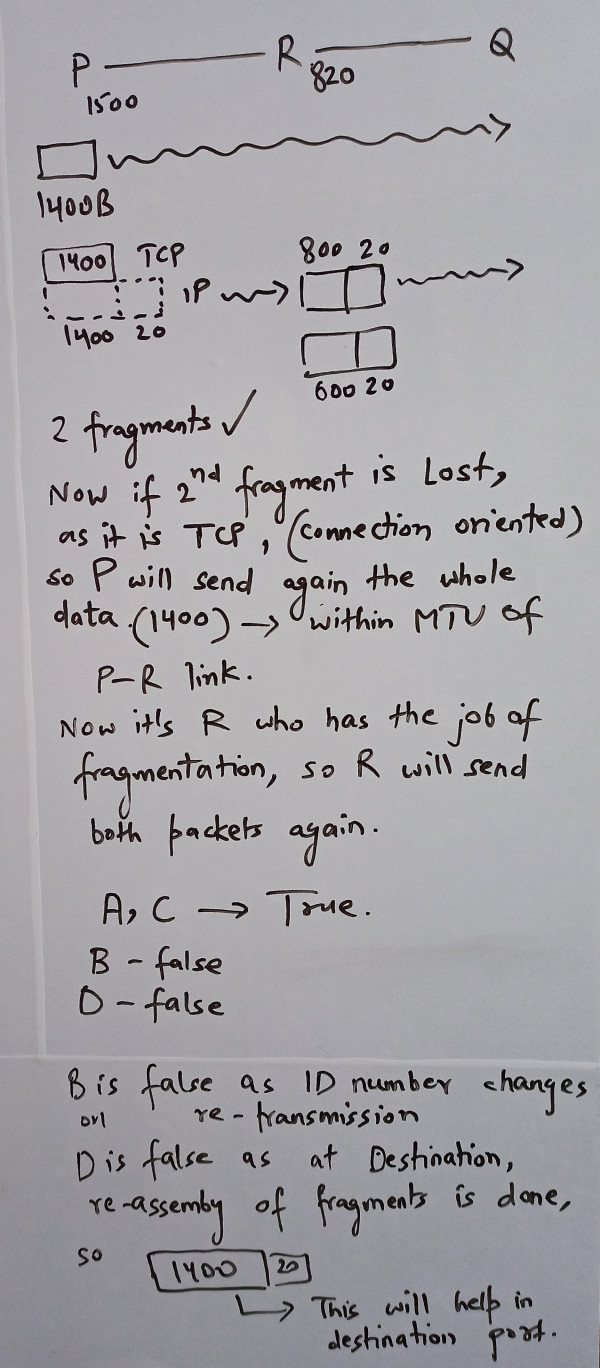 P R Q
1500 820
1400B
1400 TCP 800 20
IP
1400 20
600 20
2 fragments ✓
Now if 2nd fragment is Lost,
as it is TCP, (connection oriented)
so P will send again the whole
data.(1400) → within MTU of
P-R link.
Now it's R who has the job of
fragmentation, so R will send
both packets again.
A, C → True.
B - false
D - false
B is false as ID number changes
on re-transmission
D is false as at Destination,
re-assemby of fragments is done,
so 1400 20
→ This will help in
destination port.